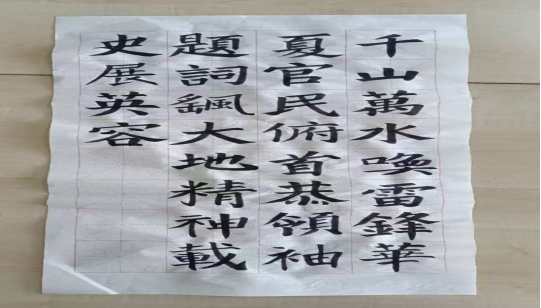 千山萬水喚雷鋒華
夏官民俯首恭領袖
題詞飄大地精神載
史展英容